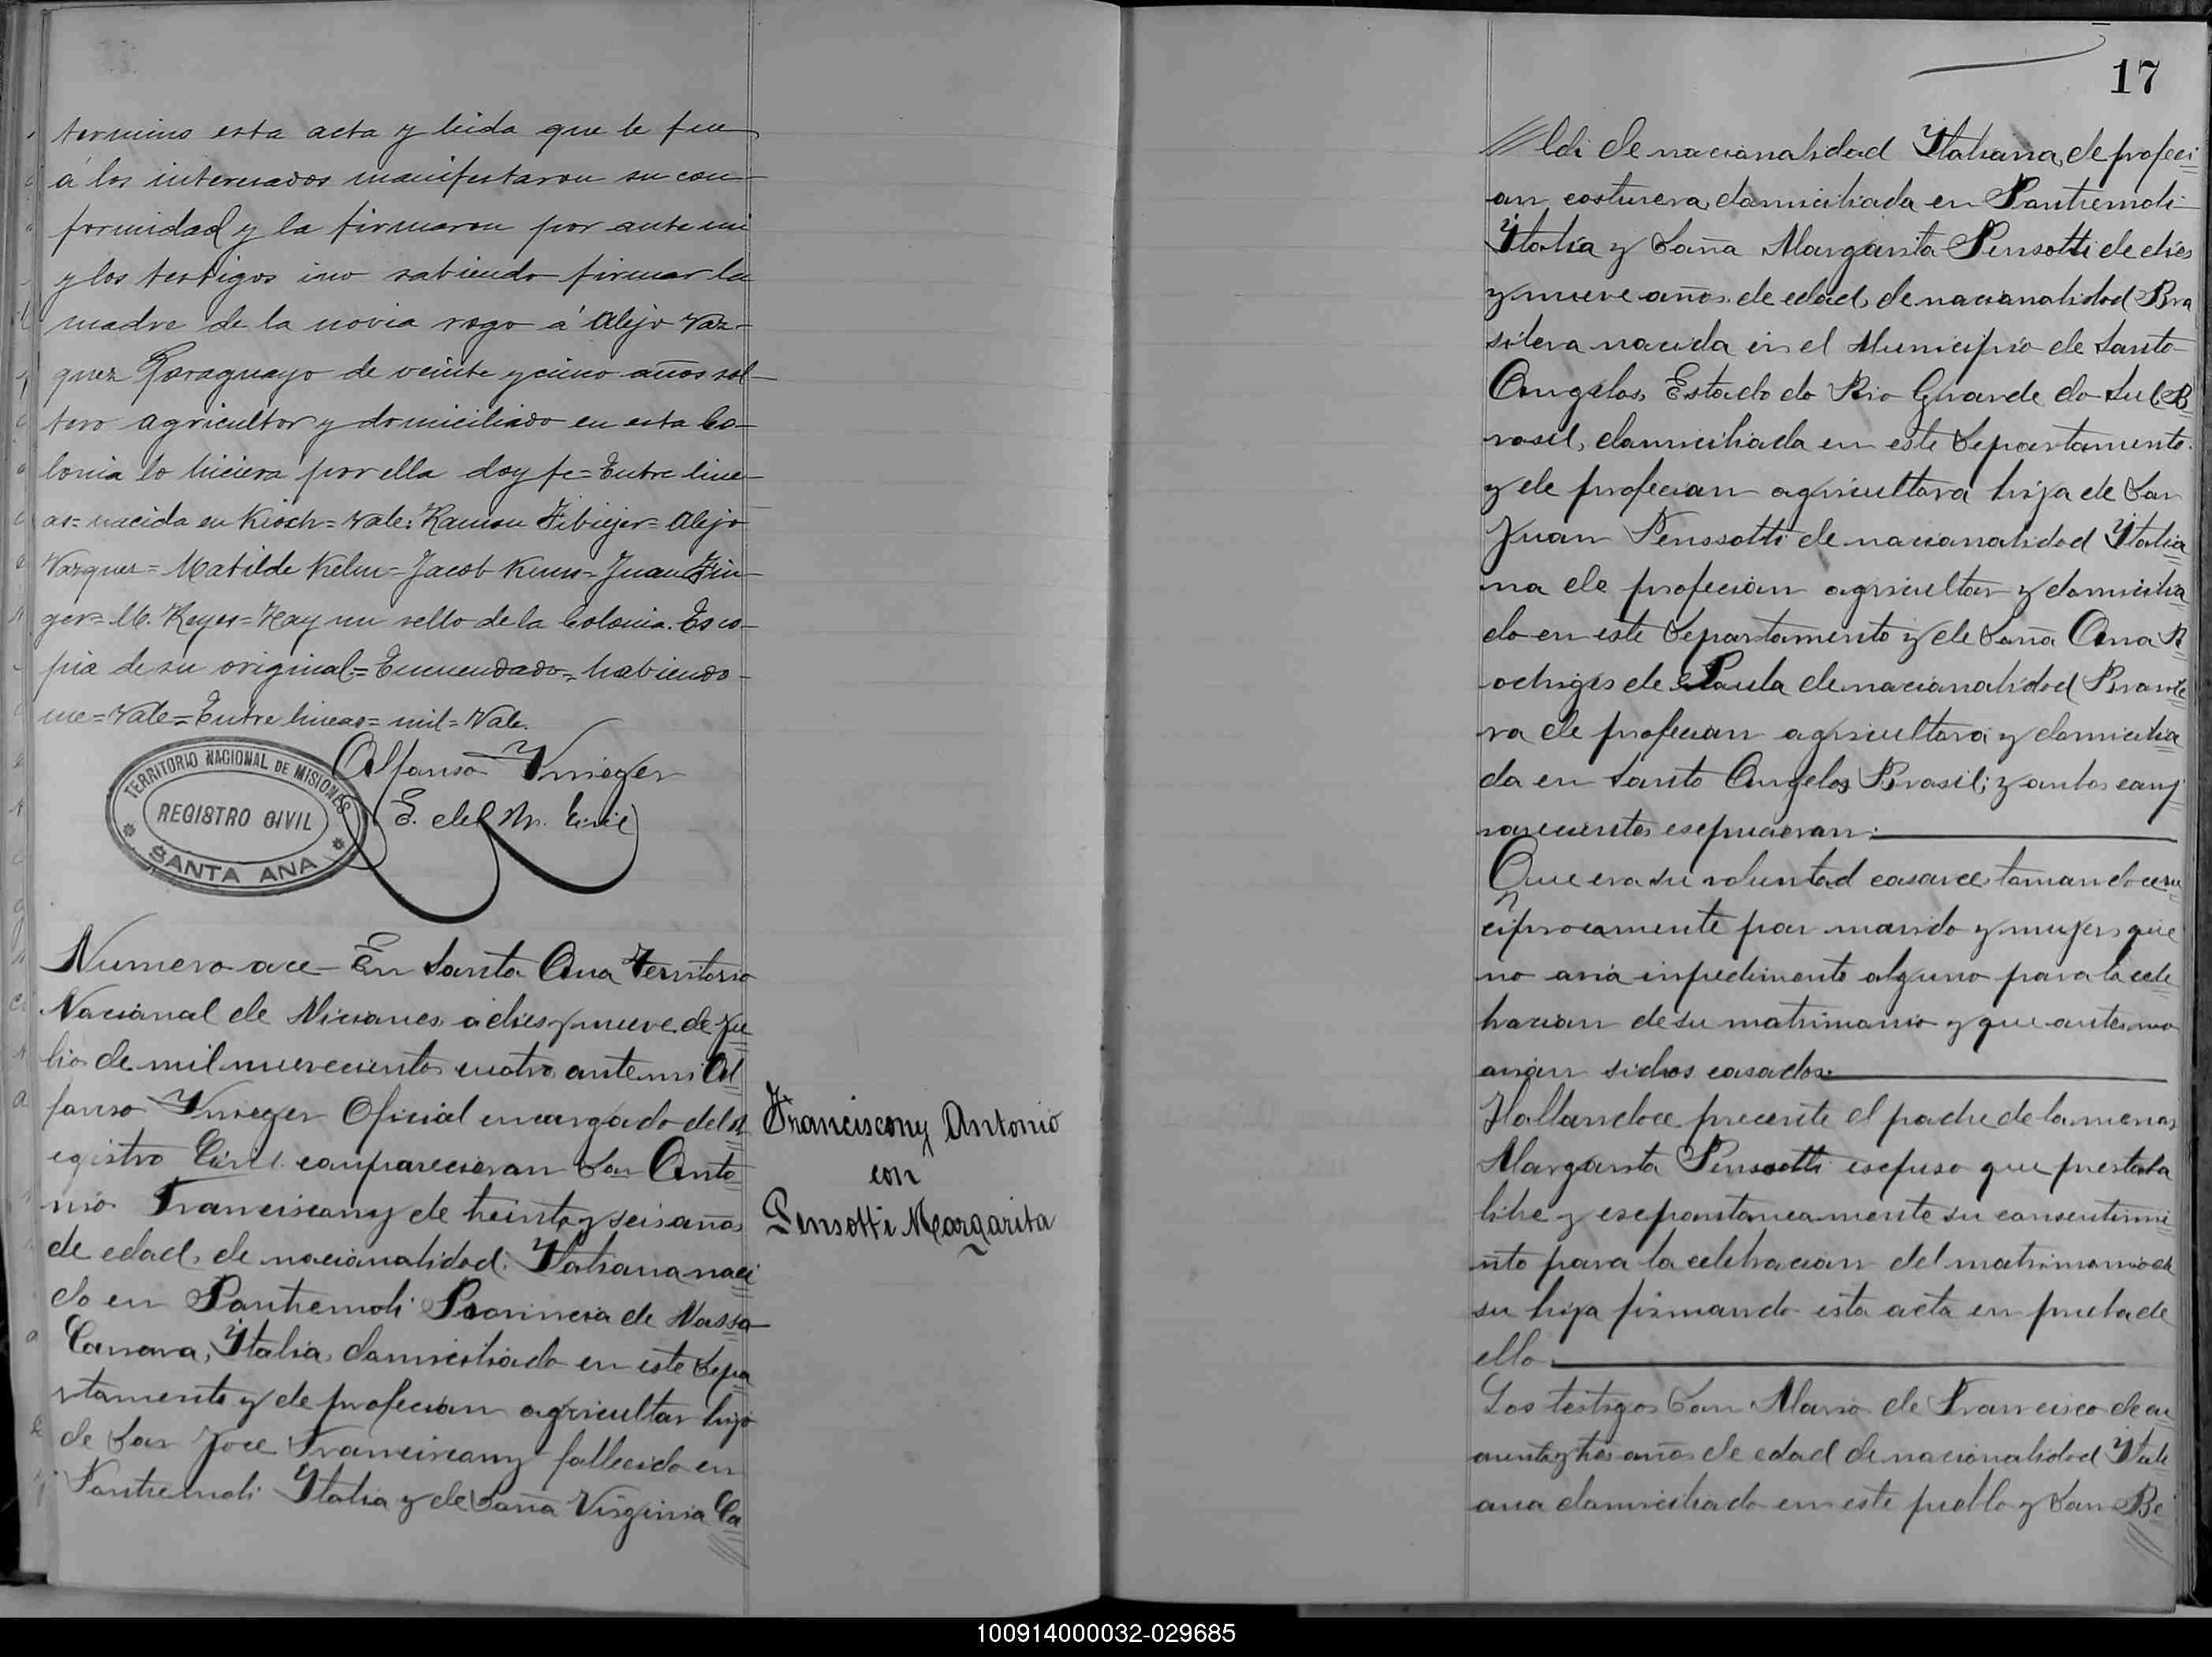 termino esta acta y leida que le fue
á los interesados manifestaron su con-
formidad y la firmaron por ante mi
y los testigos i no sabiendo firmar la
madre de la novia rogo á Alejo Vaz-
quez Paraguayo de veinte y cinco años sol-
tero agricultor y domiciliado en esta Co-
lonia lo hiciera por ella doy fe = Entre line-
as = nacida en Kioch = Vale: Ramon Fibiejer = Alejo
Vazquez = Matilde Kelm = Jacob Kuns = Juan Fin-
ger = M. Reyes = Hay un sello de la Colonia. Es co-
pia de su original = Enmendado = habiendo-
me = Vale = Entre lineas = mil = Vale.
Alfonso Krieger
E. del R. Civil
TERRITORIO NACIONAL DE MISIONES
REGISTRO CIVIL
SANTA ANA
Numero oce - En Santa Ana Territorio
Nacional de Miciones a dies y nueve de Ju
lio de mil nuevecientos cuatro ante mi Al
fonso Krieger Oficial encargado del R
egistro Civil comparecieron Don Anto
nio Franciscony de treinta y seis años
de edad, de nacionalidad Italiana naci
do en Pontremoli Provincia de Massa
Carrara, Italia, domiciliado en este Depa
rtamento y de profecion agricultor hijo
de Don Joce Franciscony fallecido en
Pontremoli Italia y de Doña Virginia Ca
Franciscony Antonio
con
Pensotti Margarita
17
ldi de nacionalidad Italiana, de profeci
on costurera, domiciliada en Pontremoli
Italia y Doña Margarita Pensotti de dies
y nueve años de edad, de nacionalidad Bra
silera nacida en el Municipio de Santo
Angelos, Estado do Rio Grande do Sul B
rasil, domiciliada en este Departamento
y de profecion agricultora hija de Don
Juan Penssotti de nacionalidad Italia
na de profecion agricultor y domicilia
do en este Departamento y de Doña Ana R
odriges de Paula de nacionalidad Brasile
ra de profecion agricultora y domicilia
da en Santo Angelos Brasil; y ambos comp
arecientes espucieron:
Que era su voluntad casarce, tomandoce re
ciprocamente por marido y mujer, que
no avia inpedimento alguno para la cele
bracion de su matrimonio y que antes no
avian sidos casados.
Hallandoce precente el padre de la menor
Margarita Penssotti espuso que prestaba
libre y esepontaneamente su consentimi
ento para la celebracion del matrimonio de
su hija firmando esta acta en prueba de
ello
Los testigos Don Mario de Francisco de cu
arenta y tres años de edad de nacionalidad Itali
ana domiciliado en este pueblo y Don Be
100914000032-029685